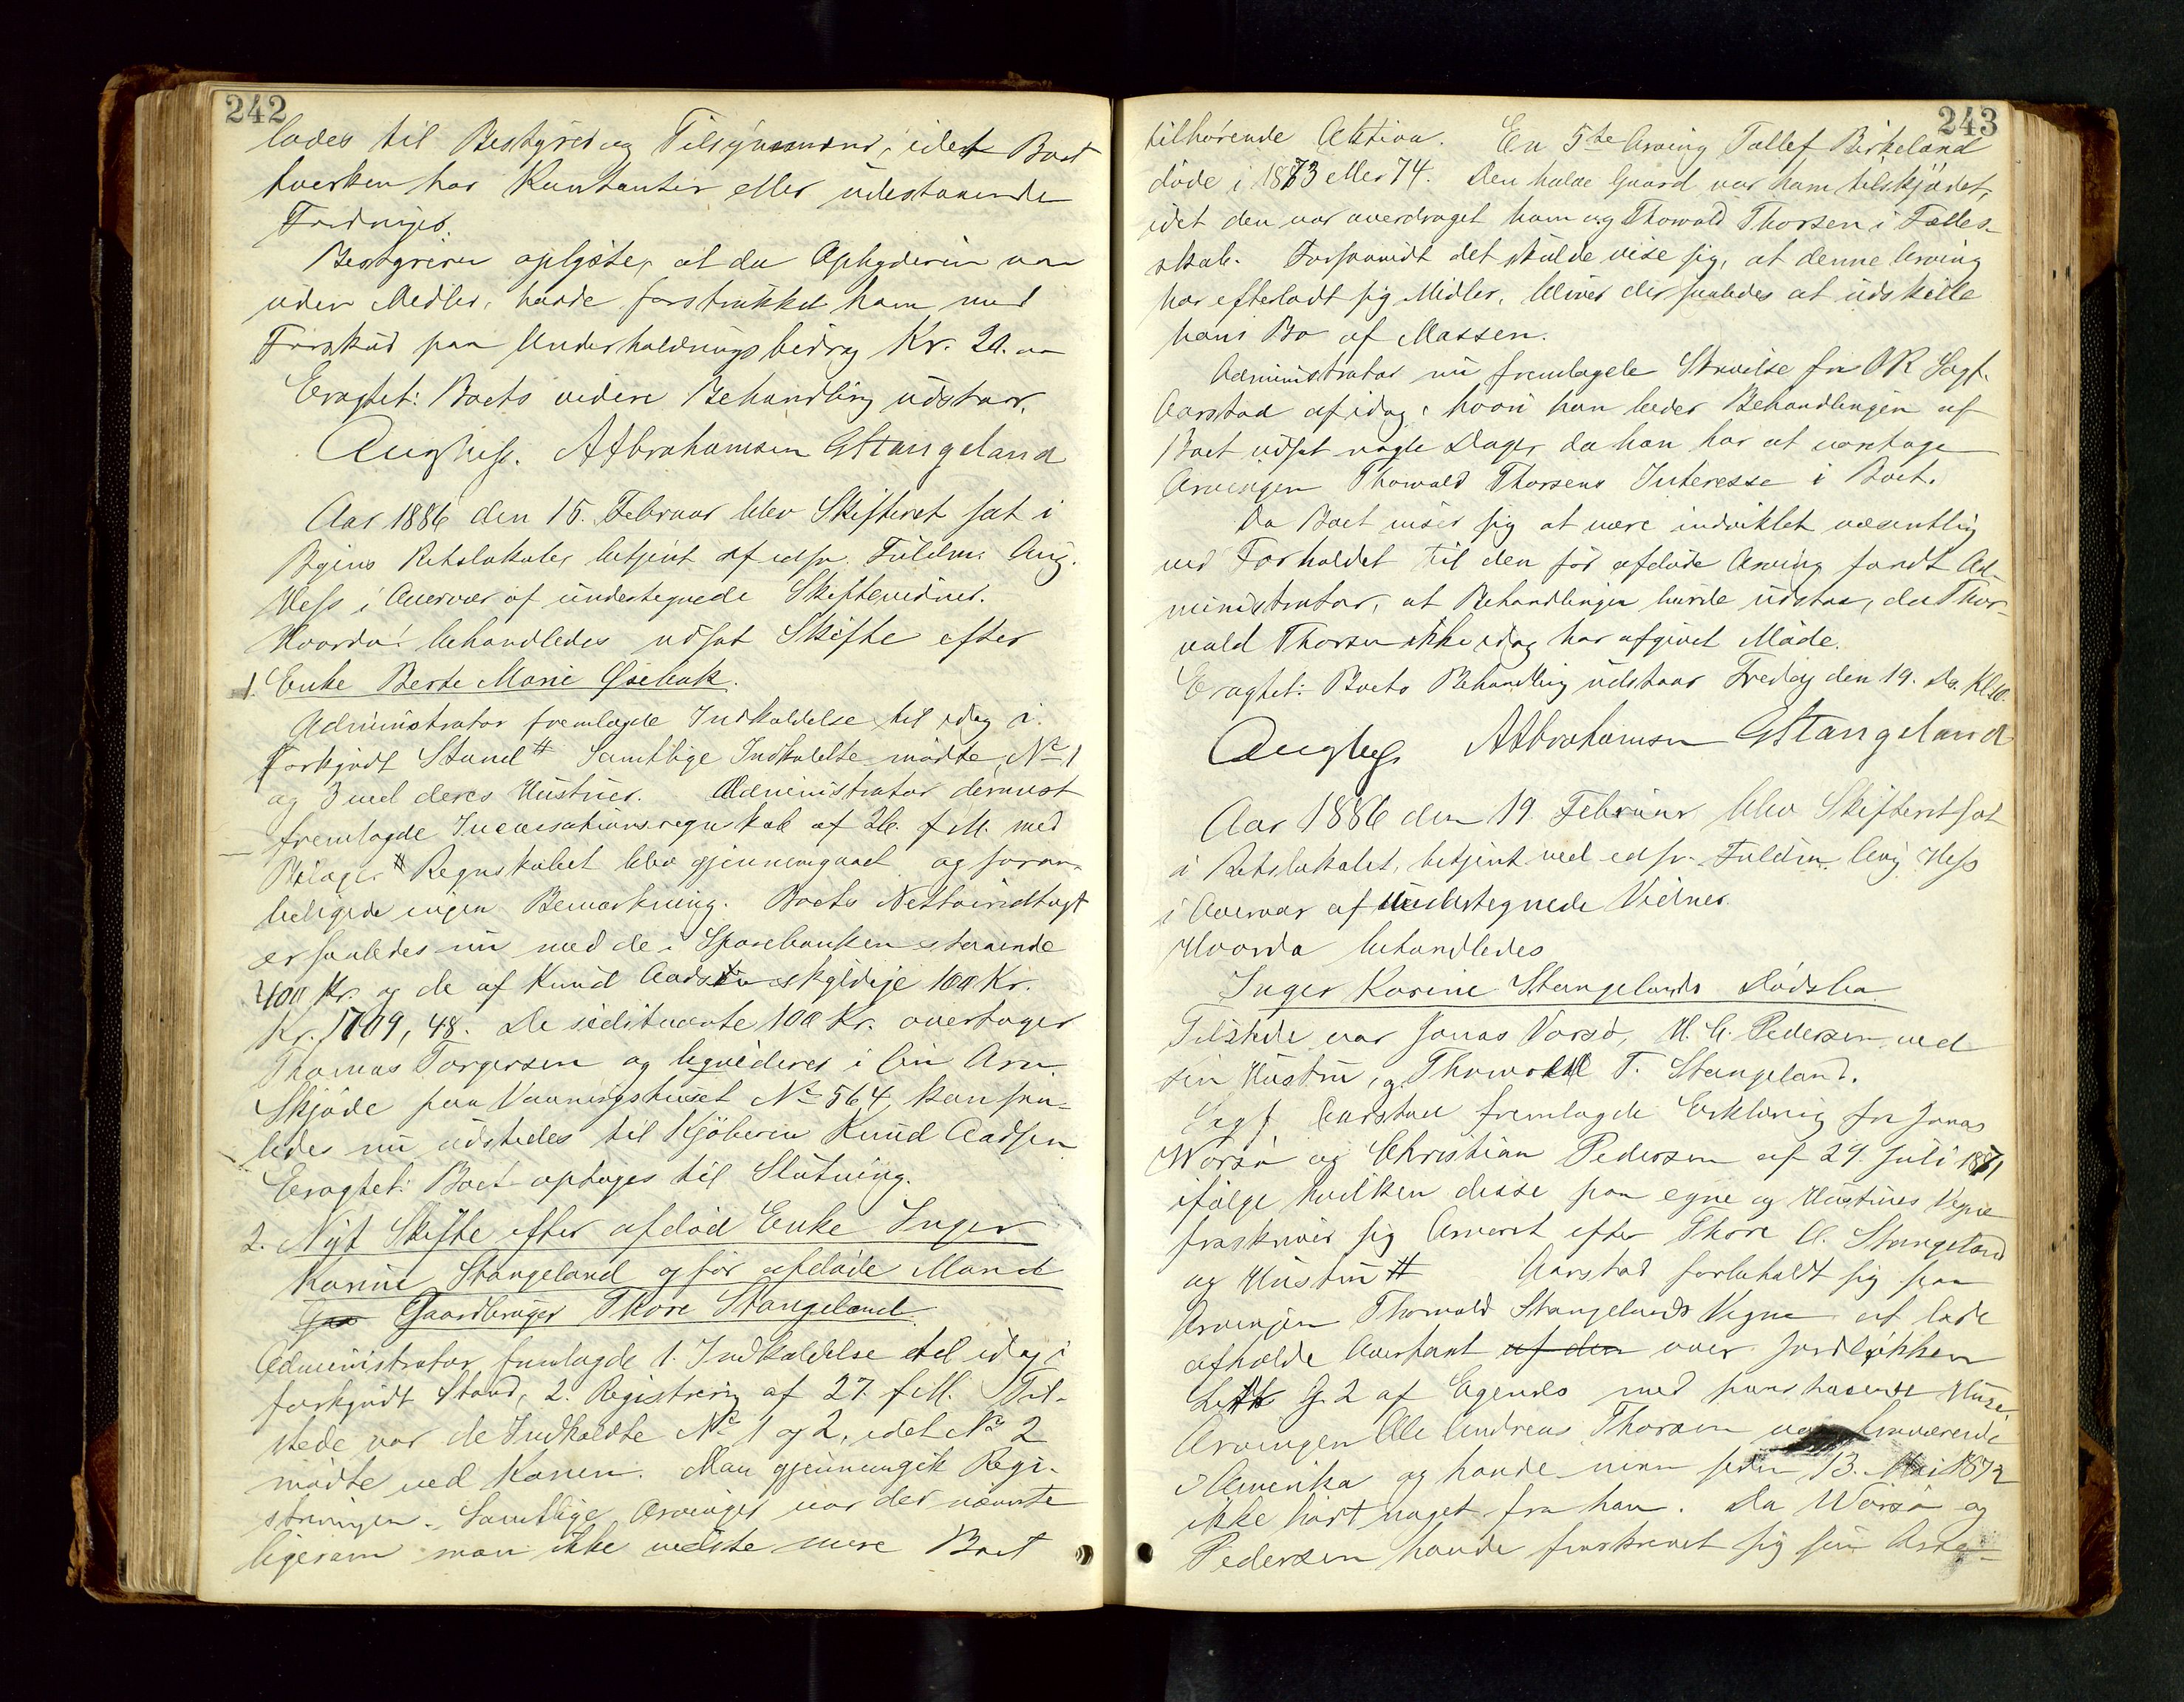 242
lades til Bestyrer og Tilsynsmænd, idet Boet
hverken har Kontanter eller udestaaende
Fordringer.
Bestyreren oplyste, at da Opbyderen var
uden Midler, havde forstrukket ham med
Forskud paa Underholdningsbidrag Kr. 20.00
Eragtet: Boets videre Behandling udstaar.
Aug Hess. A Abrahamsen G Stangeland
Aar 1886 den 15. Februar blev Skifteret sat i
Byens Retslokale, betjent af edsv. Fuldm. Aug.
Hess i Overvær af undertegnede Skiftevidner.
Hvorda behandledes udsat Skifte efter
1. Enke Berte Marie Øsebak.
Administrator fremlagde Indkaldelse til idag i
forkyndt Stand # Samtlige Indkaldte mødte, No 1
og 3 med deres Hustruer. Administrator dernæst
fremlagde Incassationsregnskab af 26. f M. med
Bilager # Regnskabet blev gjennemgaaet og foran-
ledigede ingen Bemærkning. Boets Nettoindtægt
er saaledes nu med de i Sparebanken staaende
400 Kr. og de af Knud Aadsen skyldige 100 Kr.
Kr. 1709,48. De sidstnævnte 100 Kr. overtager
Thomas Torgersen og ligvideres i sin Arv.
Skjøde paa Vaaningshuset No 564 kan saa-
ledes nu udstedes til Kjøberen Knud Aadsen
Eragtet: Boet optages til Slutning.
2. Nyt Skifte efter afdød Enke Inger
Karine Stangeland og før afdøde Mand
Gaardbruger Thore Stangeland.
Administrator fremlagde 1. Indkaldelse til idag i
forkyndt Stand, 2. Registrering af 27. f M. Til-
stede var de Indkaldte No 1 og 2, idet No 2
mødte ved Konen. Man gjennemgik Regi-
streringen. Samtlige Arvinger var der nævnte
ligesom man ikke vidste mere Boet
243
tilhørende Aktiva. En 5te Arving Tallef Birkeland
døde i 1873 eller 74. Den halve Gaard var ham tilskjødet,
idet den var overdraget ham og Thorvald Thorsen i Fælles-
skab. Forsaavidt det skulde vise sig, at denne Arving
har efterladt sig Midler, bliver der saaledes at udskille
hans Bo af Massen.
Administrator nu fremlagde Skrivelse fra OR Sagf.
Aarstad af idag, hvori han beder Behandlingen af
Boet udsat nogle Dage, da han har at varetage
Arvingen Thorvald Thorsens Interesse i Boet.
Da Boet viser sig at være indviklet væsentlig
ved Forholdet til den før afdøde Arving fandt Ad-
ministrator, at Behandlingen burde udstaa, da Thor-
vald Thorsen ikke idag har afgivet Møde.
Eragtet: Boets Behandling udstaar Fredag den 19. ds. Kl. 10.
Aug Hess A Abrahamsen G Stangeland
Aar 1886 den 19. Februar blev Skifteret sat
i Retslokalet, betjent ved edsv. Fuldm. Aug Hess
i Overvær af undertegnede Vidner.
Hvorda behandledes
Inger Karine Stangelands Dødsbo
Tilstede var Jonas Vorsø, H. C. Pedersen ved
sin Hustru, og Thorvald T. Stangeland.
Sagf Aarstad fremlagde Erklæring fra Jonas
Worsø og Christian Pedersen af 29. Juli 1871
ifølge hvilken disse paa egne og Hustrues Vegne
fraskriver sig Arveret efter Thore O. Stangeland
og Hustru # Aarstad forbeholdt sig paa
Arvingen Thorvald Stangelands Vegne at lade
afholde Overtaxt af den over Jordløkken
Litr G. 2 af Egenes med paastaaende Huse.
Arvingen Ole Andreas Thorsen var fraværende
i Amerika og havde man siden 13. Mai 1872
ikke hørt noget fra ham. Da Worsø og
Pedersen havde fraskrevet sig sin Arve-